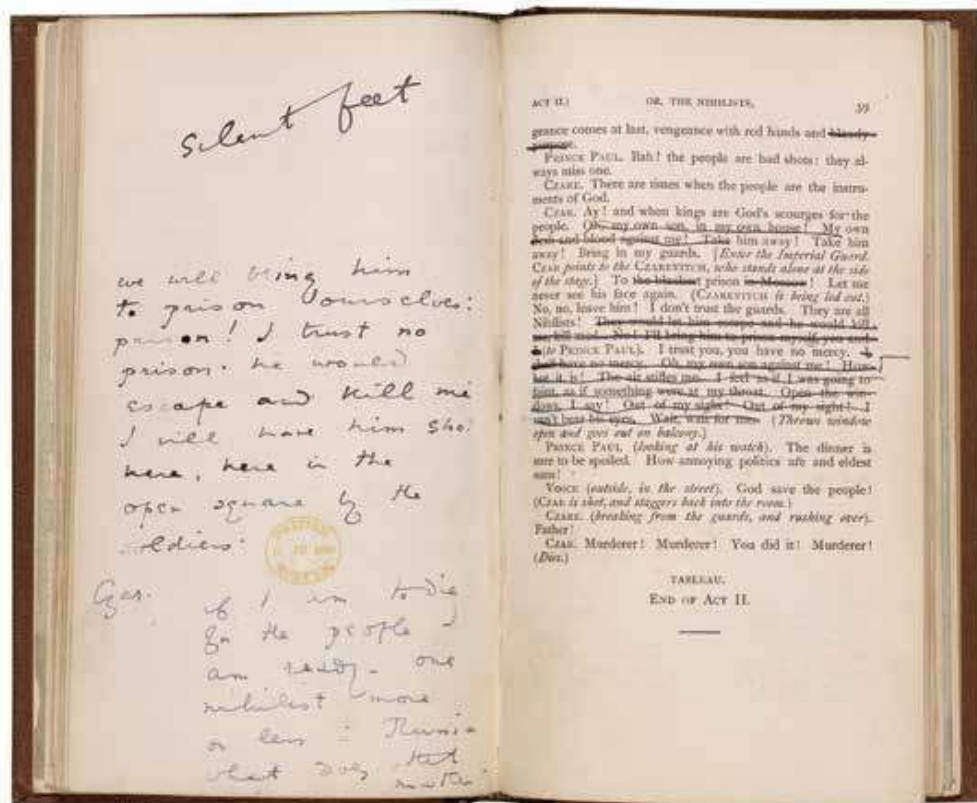 silent feet
we will bring him
to prison ourselves:
prison! I trust no
prison. he would
escape and kill me
I will have him shot
here, here in the
open square by the
soldiers.
Czar. if I am to die
for the people I
am ready. one
nihilist more
or less in Russia
what does that
matter
ACT II.] OR, THE NIHILISTS, 39
geance comes at last, vengeance with red hands and bloody
purpose.
PRINCE PAUL. Bah! the people are bad shots: they al-
ways miss one.
CZARE. There are times when the people are the instru-
ments of God.
CZAR. Ay! and when kings are God's scourges for the
people. Oh, my own son, in my own house! My own
flesh and blood against me! Take him away! Take him
away! Bring in my guards. [Enter the Imperial Guard.
CZAR points to the CZAREVITCH, who stands alone at the side
of the stage.] To the prison in Moscow! Let me
never see his face again. (CZAREVITCH is being led out.)
No, no, leave him! I don't trust the guards. They are all
Nihilists! They would let him escape and he would kill
me, kill me! No! I'll bring him to prison myself, you and
I (to PRINCE PAUL). I trust you, you have no mercy. I
shall have no mercy. Oh, my own son against me! How
hot it is! The air stifles me. I feel as if I was going to
faint, as if something were at my throat. Open the win-
dows, I say! Out of my sight! Out of my sight! I
can't bear his eyes. Wait, wait for me. (Throws window
open and goes out on balcony.)
PRINCE PAUL (looking at his watch). The dinner is
sure to be spoiled. How annoying politics are and eldest
sons!
VOICE (outside, in the street). God save the people!
(CZAR is shot, and staggers back into the room.)
CZARE. (breaking from the guards, and rushing over).
Father!
CZAR. Murderer! Murderer! You did it! Murderer!
(Dies.)
TABLEAU.
END OF ACT II.